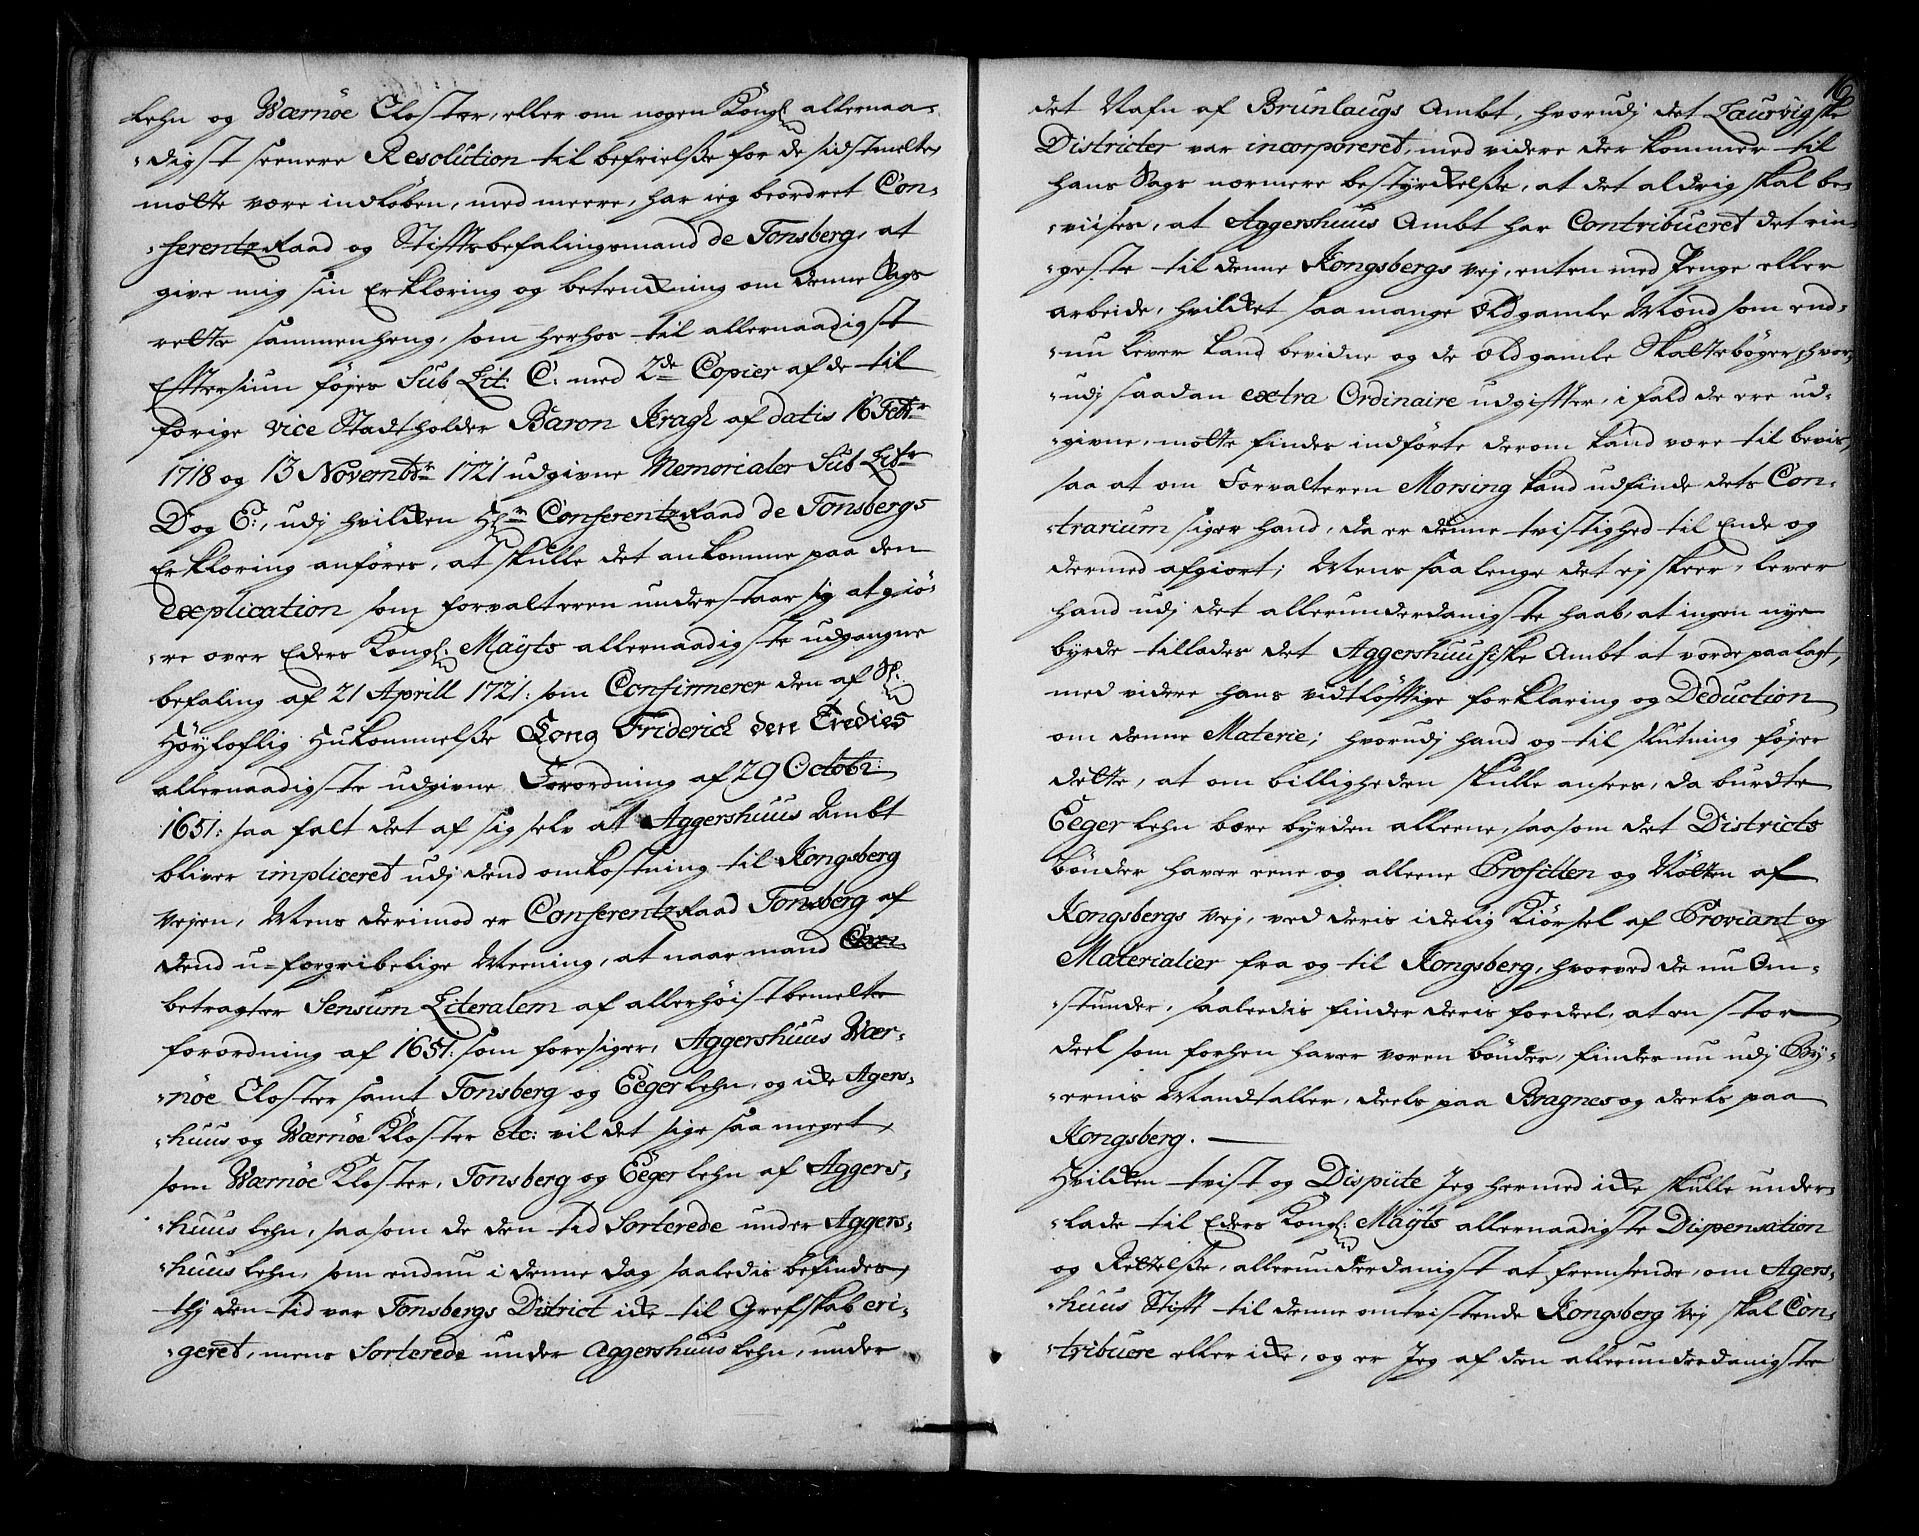 Lehn og Wærnøe Closter, eller om nogen Kongl. allernaa-
-digst seenere Resolution til befrielsße for de sidstmelte,
motte være indløben, med meere, har ieg beordret Con-
-ferentz Raad og Stifftsbefalingsmand de Tonsberg, at
give mig sin Erklæring og betenckning om denne Sags
rette sammenheng, som herhos til allernaadigst
Efftersiun føjes Sub Lit: C: med 2de Copier af de til
forige Vice Stadtholder Baron Kragh af datis 16 Febr
1718 og 13 Novembr 1721 udgivne Memorialer Sub Litr
D og E:, udj hvilcken Hr Conferentz Raad de Tonsbergs
Erklæring anføres, at skulle det ankomme paa den
explication som forvalteren understaar sig at giö-
-re over Eders Kongl: Mayts allernaadigste udgangne
befaling af 21 Aprill 1721: som Confirmerer den af Sl:
Høyloflig Hukommelsße Kong Friderich den Tredies
allernaadigste udgivne Forordning af 29 Octobr:
1651: saa falt det af sig selv at Aggershuus Ambt
bliver impliceret udj dend omkostning til Kongsberg
Vejen, Mens derimod er Conferentz Raad Tonsberg af
dend u-forgribelige Meening, at naar mand
betragter Sensum Literalem af allerhöistbemelte
forordning af 1651: som foresiger, Aggershuus Wær-
-nöe Closter samt Tonsberg og Eeger Lehn, og icke Agers-
-huus og Wærnöe Kloster etc: vil det sige saa meget,
som Wærnöe Kloster, Tonsberg og Eeger Lehn af Aggers-
-huus Lehn, saasom de den tid Sorterede under Aggers-
-huus Lehn, som endnu i denne dag saaledis befindes,
thj den tid var Tonsbergs District icke til Grefskab eri-
-geret, mens Sorterede under Aggershuus Lehn, under
16
det Nafn af Brunlaugs Ambt, hvorudj det Laurvigske
Districter var incorporeret, med videre der kommer til
hans Sags nærmere bestyrckelsße, at det aldrig skal be-
-viises, at Aggershuus Ambt har Contribueret det rin-
-geste til denne Kongsbergs Vej, enten med Penge eller
arbeide, hvilcket saa mange Oldgamle Mænd som end-
-nu lever kand bevidne og de Oldgamle Skattebøger, hvor-
-udj saadan extra Ordinaire udgiffter, i fald de ere ud-
-givne, motte findes indførte derom kand være til bevis,
saa at om Forvalteren Morsing kand udfinde dets Con-
-trarium siger hand, da er denne tvistighed til Ende og
dermed afgiort; Mens saa lenge det ej skeer, lever
hand udj det allerunderdanigste haab, at ingen nye
byrde tillades det Aggershuusiske Ambt at vorde paalagt,
med videre hans vidtløfftige forklaring og Deduction
om denne Materie; hvorudj hand og til slutning føjer
dette, at om billigheden skulle ansees, da burdte
Eeger Lehn bære byrden alleene, saasom det Districts
bönder haver eene og alleene Profitten og Nötten af
Kongsbergs Vej, ved deris idelig Kiörsel af Proviant og
Materialier fra og til Kongsberg, hvorved de nu Om-
-stunder, saaledis finder deris fordeel, at en stor
deel som forhen haver været bönder, findes nu udj By-
-ernis Mandtaller, deels paa Bragnes og deels paa
Kongsberg.
Hvilcken tvist og Dispüte Jeg hermed icke skulle under-
-lade til Eders Kongl: Mayts allernaadigste Dispensation
og Rettelsße, allerunderdanigst at fremsende, om Agers-
-huus Stifft til denne omtvistende Kongsberg Vej skal Con-
-tribuere eller icke, og er Jeg af den allerunderdanigste